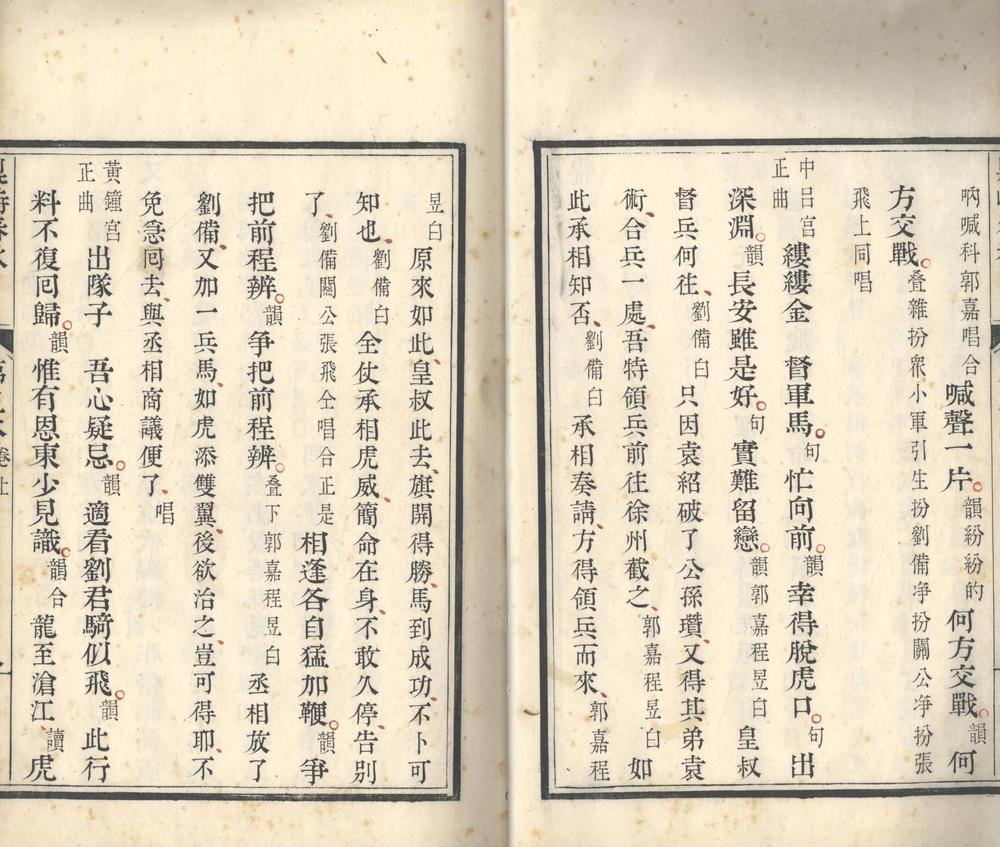 吶喊科郭嘉唱合喊聲一片韻紛紛的何方交戰韻何
方交戰疊雜扮衆小軍引生扮劉備净扮關公净扮張
飛上同唱
中呂宮正曲縷縷金 督軍馬句忙向前韻幸得脫虎口句出
深淵韻長安雖是好句實難留戀韻郭嘉程昱白皇叔
督兵何往劉備白只因袁紹破了公孫瓚又得其弟袁
術合兵一處吾特領兵前往徐州截之郭嘉程昱白如
此承相知否劉備白承相奏請方得領兵而來郭嘉程
昱白原來如此皇叔此去旗開得勝馬到成功不卜可
知也劉備白全仗承相虎威簡命在身不敢久停告別
了劉備關公張飛仝唱合正是相逢各自猛加鞭韻爭
把前程辨韻爭把前程辨疊下郭嘉程昱白丞相放了
劉備又加一兵馬如虎添雙翼後欲治之豈可得耶不
免急囘去與丞相商議便了唱
黃鐘宮正曲出隊子 吾心疑忌韻適看劉君騎似飛韻此行
料不復囘歸韻惟有恩東少見識韻合龍至滄江讀虎